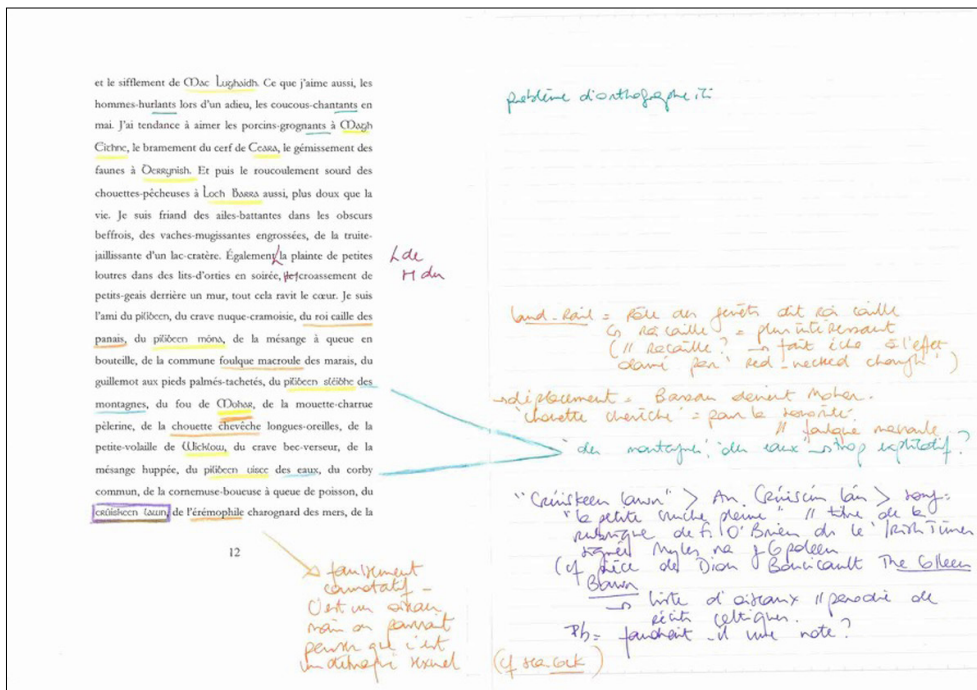 et le sifflement de Mac Lughaidh. Ce que j'aime aussi, les
hommes-hurlants lors d'un adieu, les coucous-chantants en
mai. J'ai tendance à aimer les porcins-grognants à Magh
Eithne, le bramement du cerf de Ceara, le gémissement des
faunes à Derrynish. Et puis le roucoulement sourd des
chouettes-pêcheuses à Loch Barra aussi, plus doux que la
vie. Je suis friand des ailes-battantes dans les obscurs
beffrois, des vaches-mugissantes engrossées, de la truite-
jaillissante d'un lac-cratère. Également la plainte de petites
loutres dans des lits-d'orties en soirée, croassement de
petits-geais derrière un mur, tout cela ravit le cœur. Je suis
l'ami du pilibeen, du crave nuque-cramoisie, du roi caille des
panais, du pilibeen móna, de la mésange à queue en
bouteille, de la commune foulque macroule des marais, du
guillemot aux pieds palmés-tachetés, du pilibeen sléibhe des
montagnes, du fou de Mohar, de la mouette-charrue
pèlerine, de la chouette chevêche longues-oreilles, de la
petite-volaille de Wicklow, du crave bec-verseur, de la
mésange huppée, du pilibeen uisce des eaux, du corby
commun, de la cornemuse-boueuse à queue de poisson, du
crúiskeen lawn, de l'érémophile charognard des mers, de la
12
problème d'orthographe ici
de
du
land-rail = Râle des genêts dit roi caille
roi caille = plus intéressant
(// Racaille? → fait écho à l'effet
donné par "red-necked chough")
→ déplacement = Banau devient Moher.
"chouette chevêche" = pour la sonorité.
// foulque macroule
"des montagnes", "des eaux" → trop explicatif?
"Crúiskeen lawn" > An Crúiscín lán > song =
"la petite cruche pleine" // titre de la
rubrique de F. O'Brien ds le Irish Times
signée Myles na gCopaleen
(cf pièce de Dion Boucicault The Colleen
Bawn
→ liste d'oiseaux // parodie de
récits celtiques.
Pb = faudrait-il une note?
faussement
connotatif -
C'est un oiseau
mais on pourrait
penser que c'est
un sexuel
(cf sea cock)